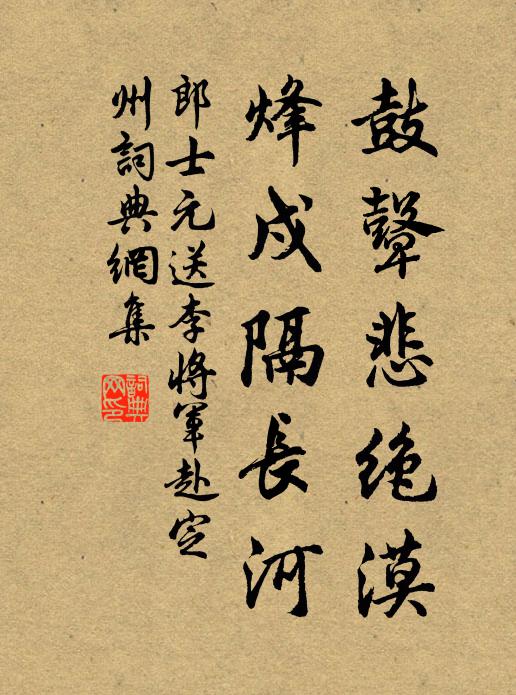 鼓鼙悲绝漠
烽戍隔長河
郎士元送李將軍赴定
州詞典網集
詞典
网印